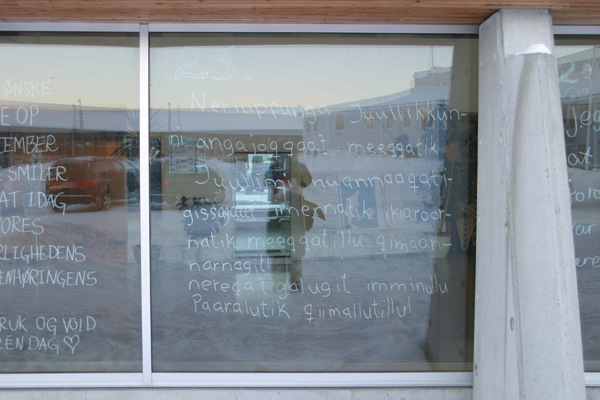 ØNSKE
E OP
TEMBER
E SMILER
AT IDAG
ORES
RLIGHEDENS
ENHØRINGENS
RUK OG VOLD
REN DAG ♡
2.3.
Neriuppunga Juullikkun-
ni angajoqqat meeqqatik
Juullimi nuannaaqati-
gissagaat imernatik kiaroor-
natik meeqqatillu qimaan-
narnagit
nereqatigalugit imminullu
Paaralutik qiimallutillu!
Jeg
at